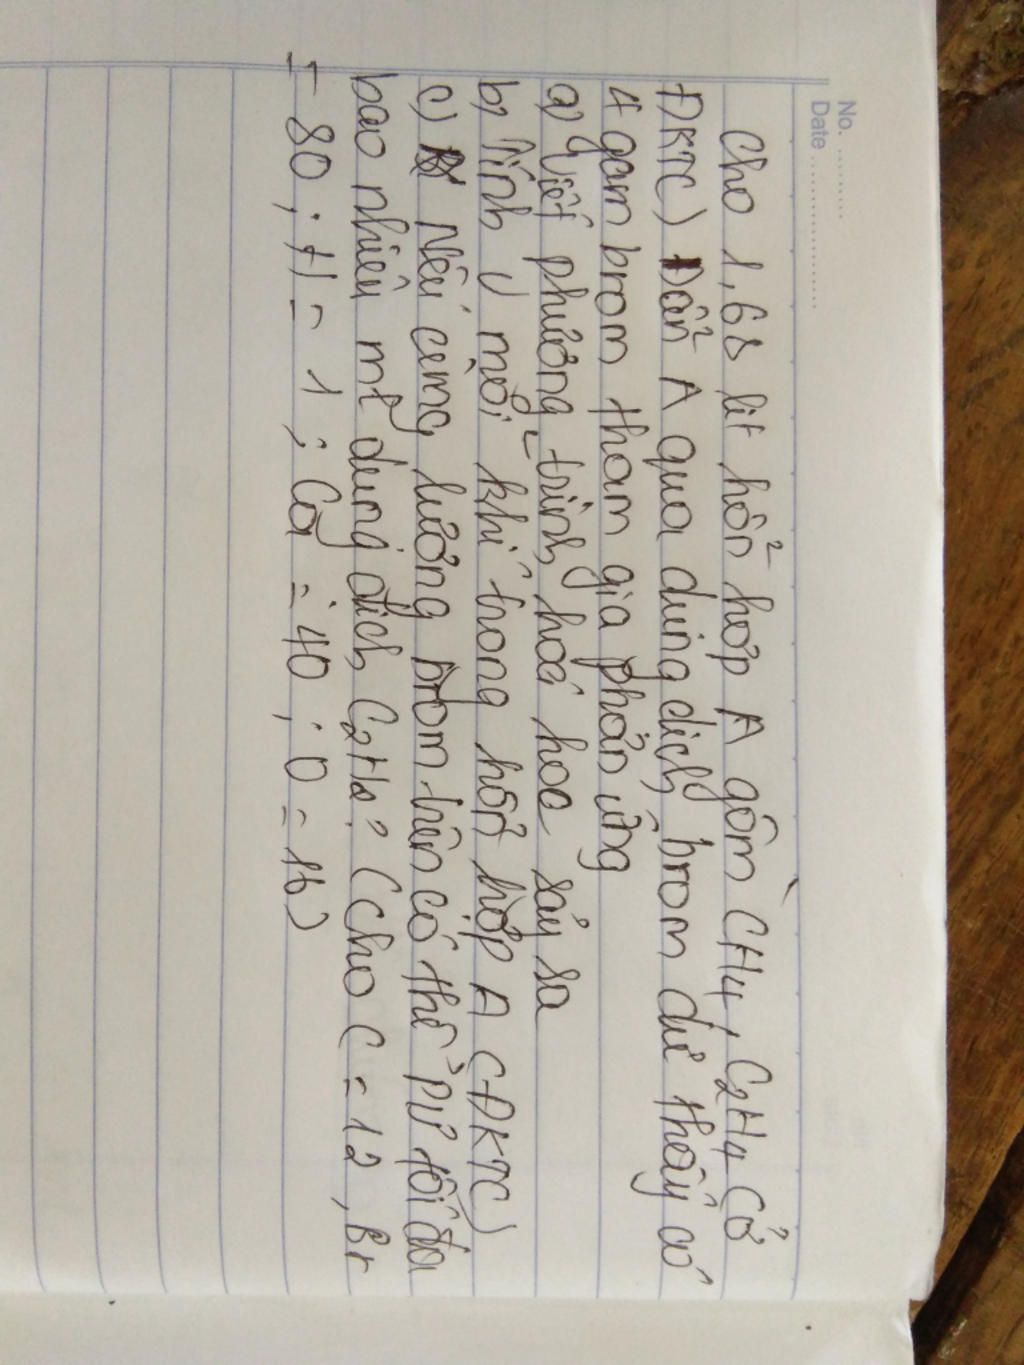 No. ..........
Date ........................
Cho 1,68 lít hỗn hợp A gồm CH4, C2H4 (ở
ĐKTC) Dẫn A qua dung dịch brom dư thấy có
4 gam brom tham gia phản ứng
a) Viết phương trình hoá học sảy sa
b) Tính V mỗi khí trong hỗn hợp A (ĐKTC)
c) Nếu cũng lượng brom trên có thể pư tối đa
bao nhiêu ml dung dịch C2H2? (Cho C = 12, Br
= 80; H = 1; Ca = 40; O = 16)